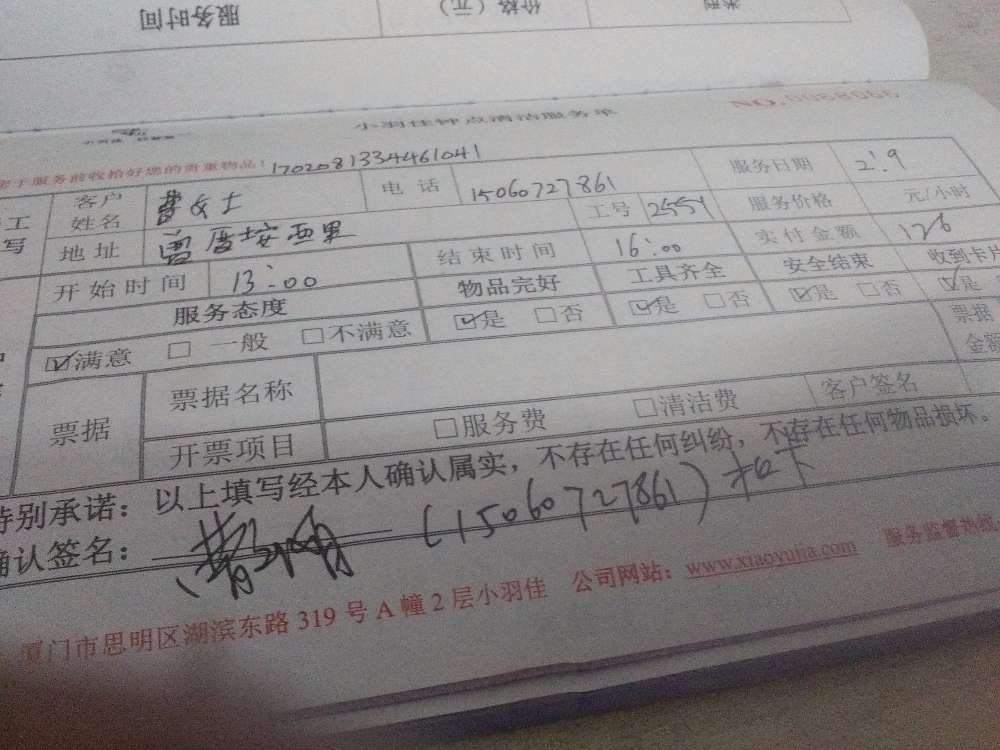 服务时间 价格（元） 类型
小羽佳钟点清洁服务单 NO.0068066
于服务前收拾好您的贵重物品！1702081334461041
客户姓名 女士 电话 15060727861 服务日期 2.9
地址 西里 工号 2551 服务价格 元/小时
开始时间 13:00 结束时间 16:00 实付金额 126
服务态度 物品完好 工具齐全 安全结束 收到卡片
☑满意 □一般 □不满意 ☑是 □否 ☑是 □否 ☑是 □否 ☑是
票据 票据名称 票据金额
开票项目 □服务费 □清洁费 客户签名
特别承诺：以上填写经本人确认属实，不存在任何纠纷，不存在任何物品损坏。
确认签名： （15060727861）
厦门市思明区湖滨东路 319 号 A 幢 2 层小羽佳 公司网站：www.xiaoyujia.com 服务监督热线